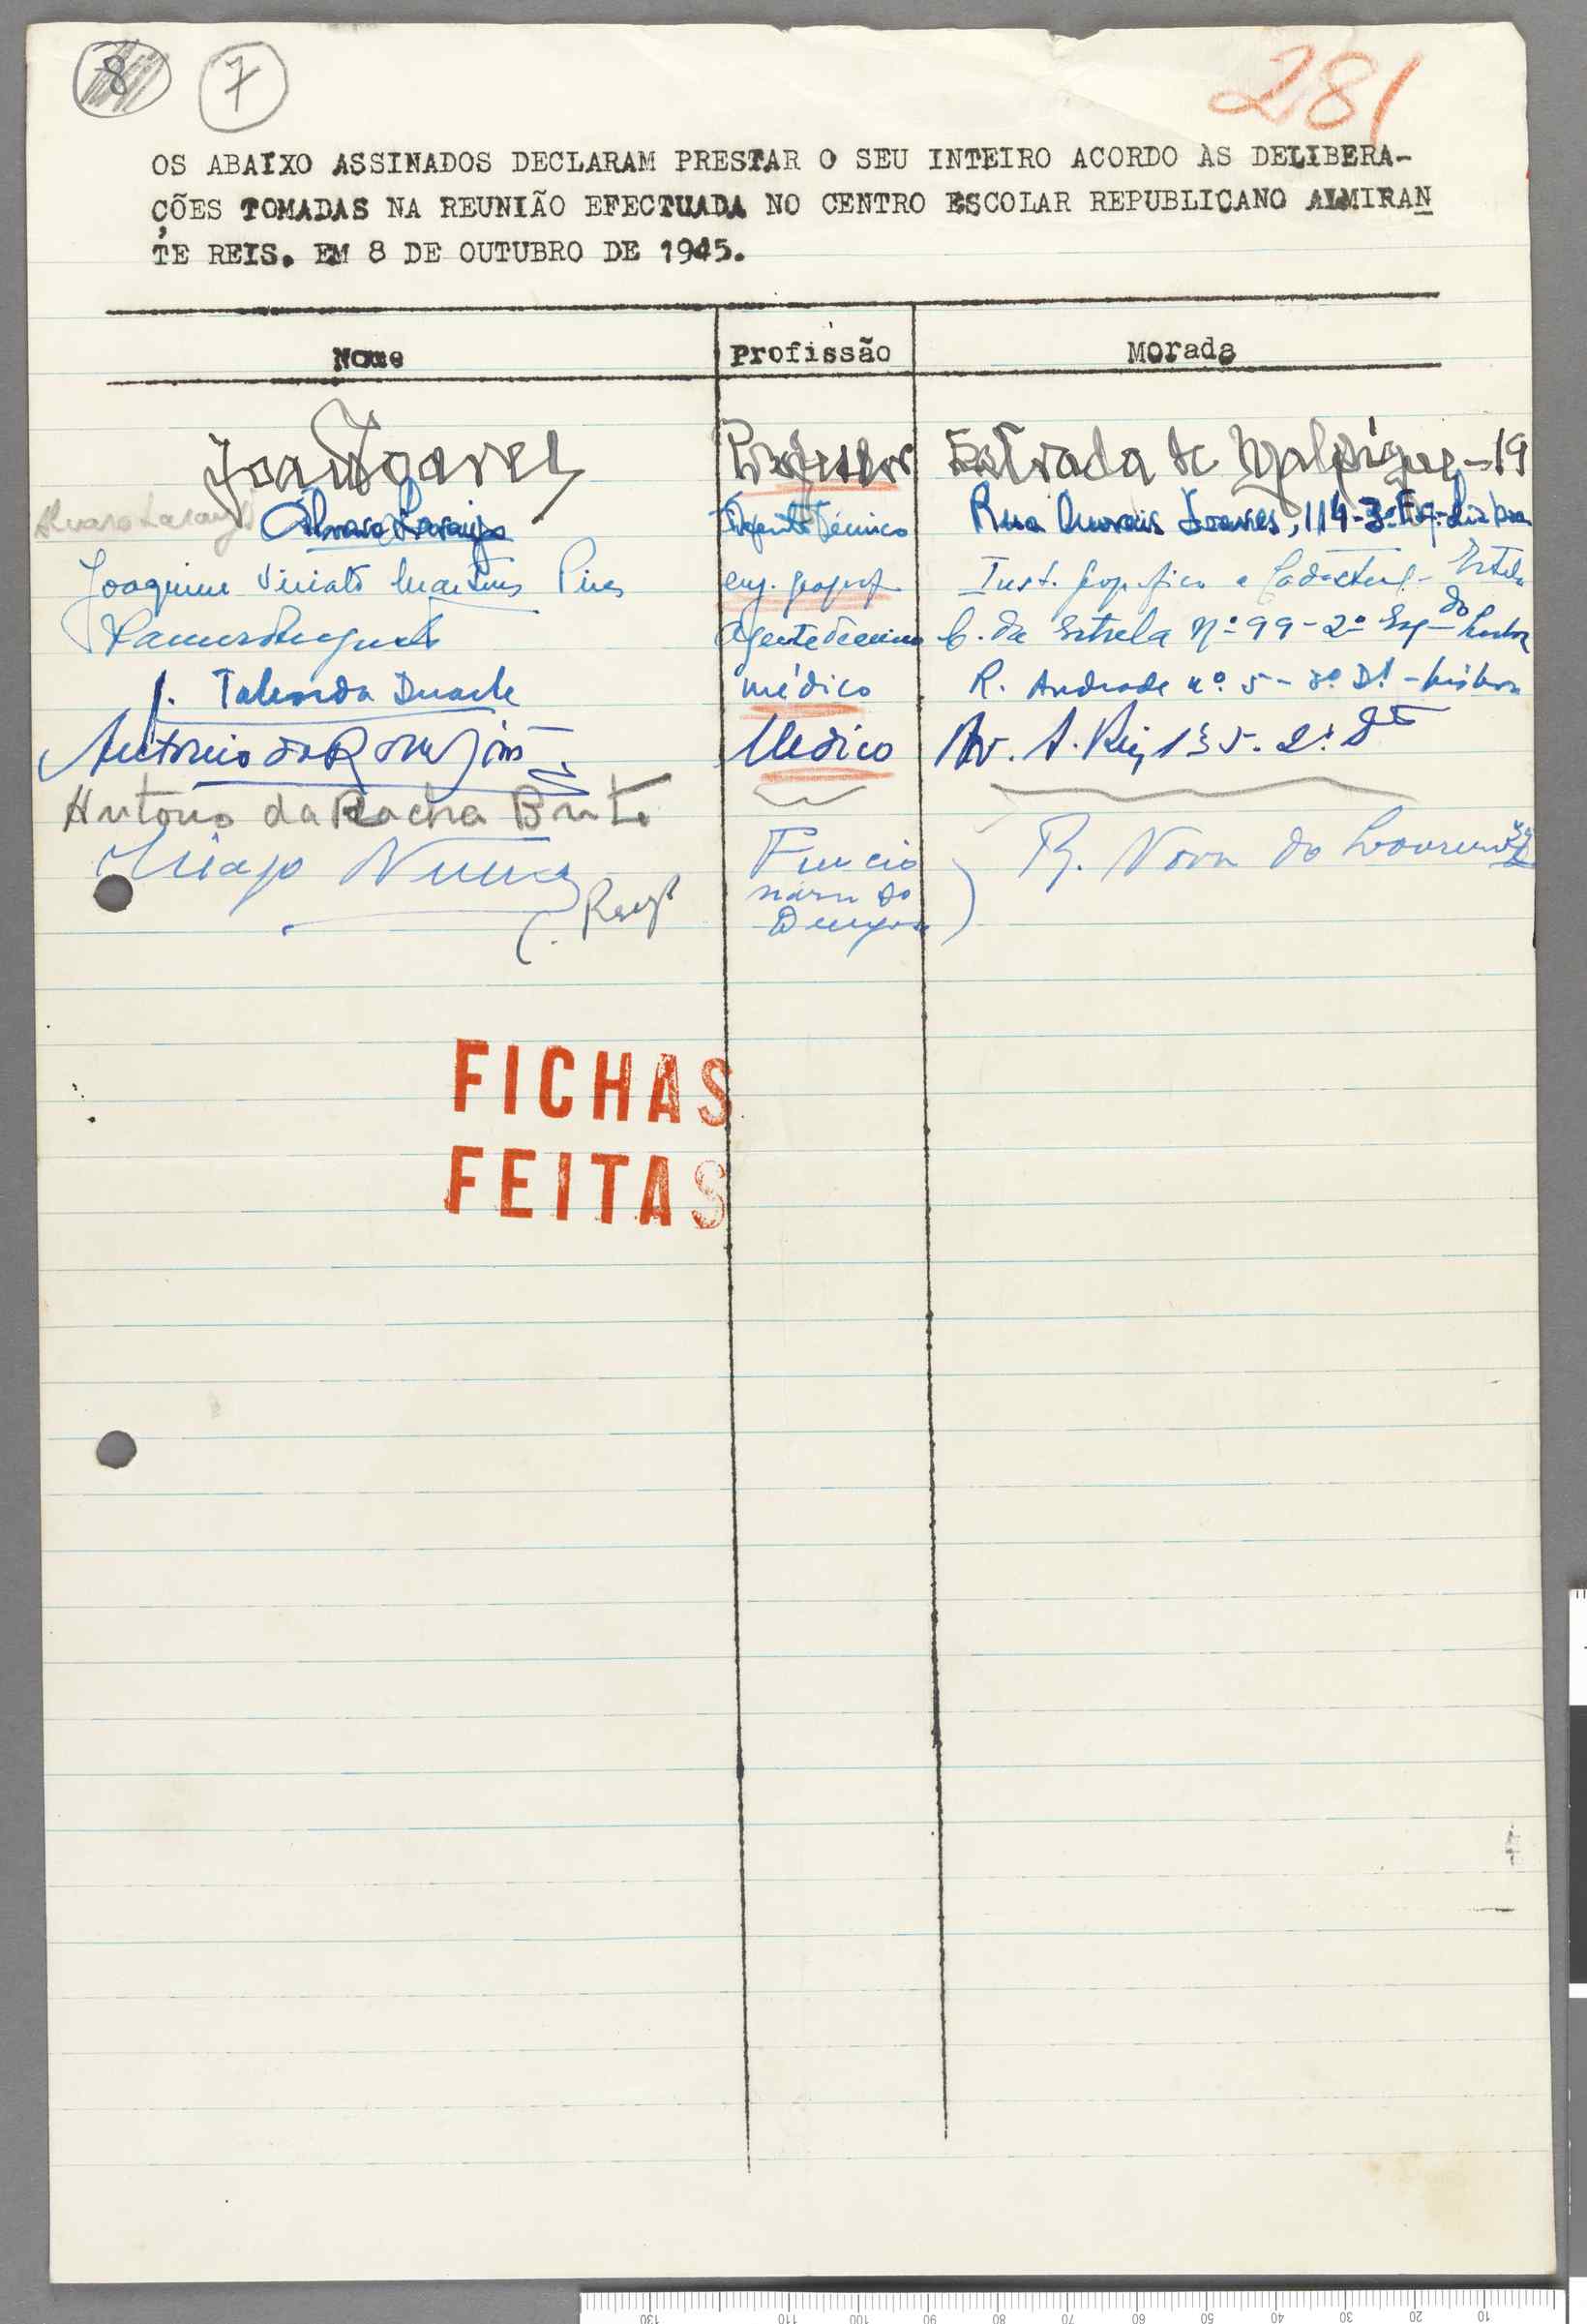 8 7
281
OS ABAIXO ASSINADOS DECLARAM PRESTAR O SEU INTEIRO ACORDO ÀS DELIBERA-
ÇÕES TOMADAS NA REUNIÃO EFECTUADA NO CENTRO ESCOLAR REPUBLICANO ALMIRAN
TE REIS. EM 8 DE OUTUBRO DE 1945.
Nome Profissão Morada
Professor Estrada de Malpique-19
Alvaro Laranjo Alvaro Laranjo Agente Técnico Rua Morais Soares, 114-3º Esq. Lisboa
Joaquim Viriato Martins Pires eng. geógraf Inst. Geográfico e Cadastral - Estrela
Agente Técnico C. da Estrela Nº 99-2º Esqdo Lisboa
J. Duarte médico R. Andrade nº 5-3º Dt - Lisboa
Medico Av. A. Reis, 135-2º Dto
Antonio da Rocha Brito
Thiago Nunes Funcio R. Nova do Loureiro
nário do
FICHAS
FEITAS